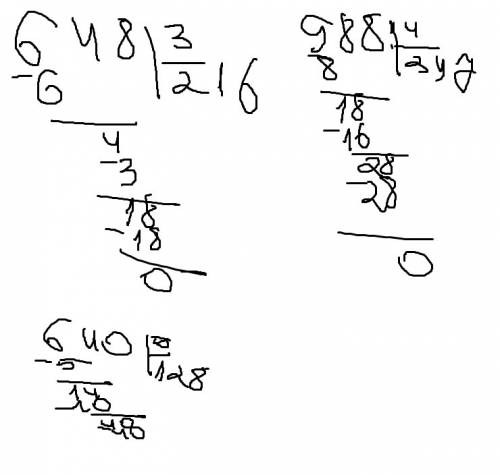 648 3
-6 216
4
-3
18
-18
0
988 4
8 247
18
-16
28
-28
0
640
-5 128